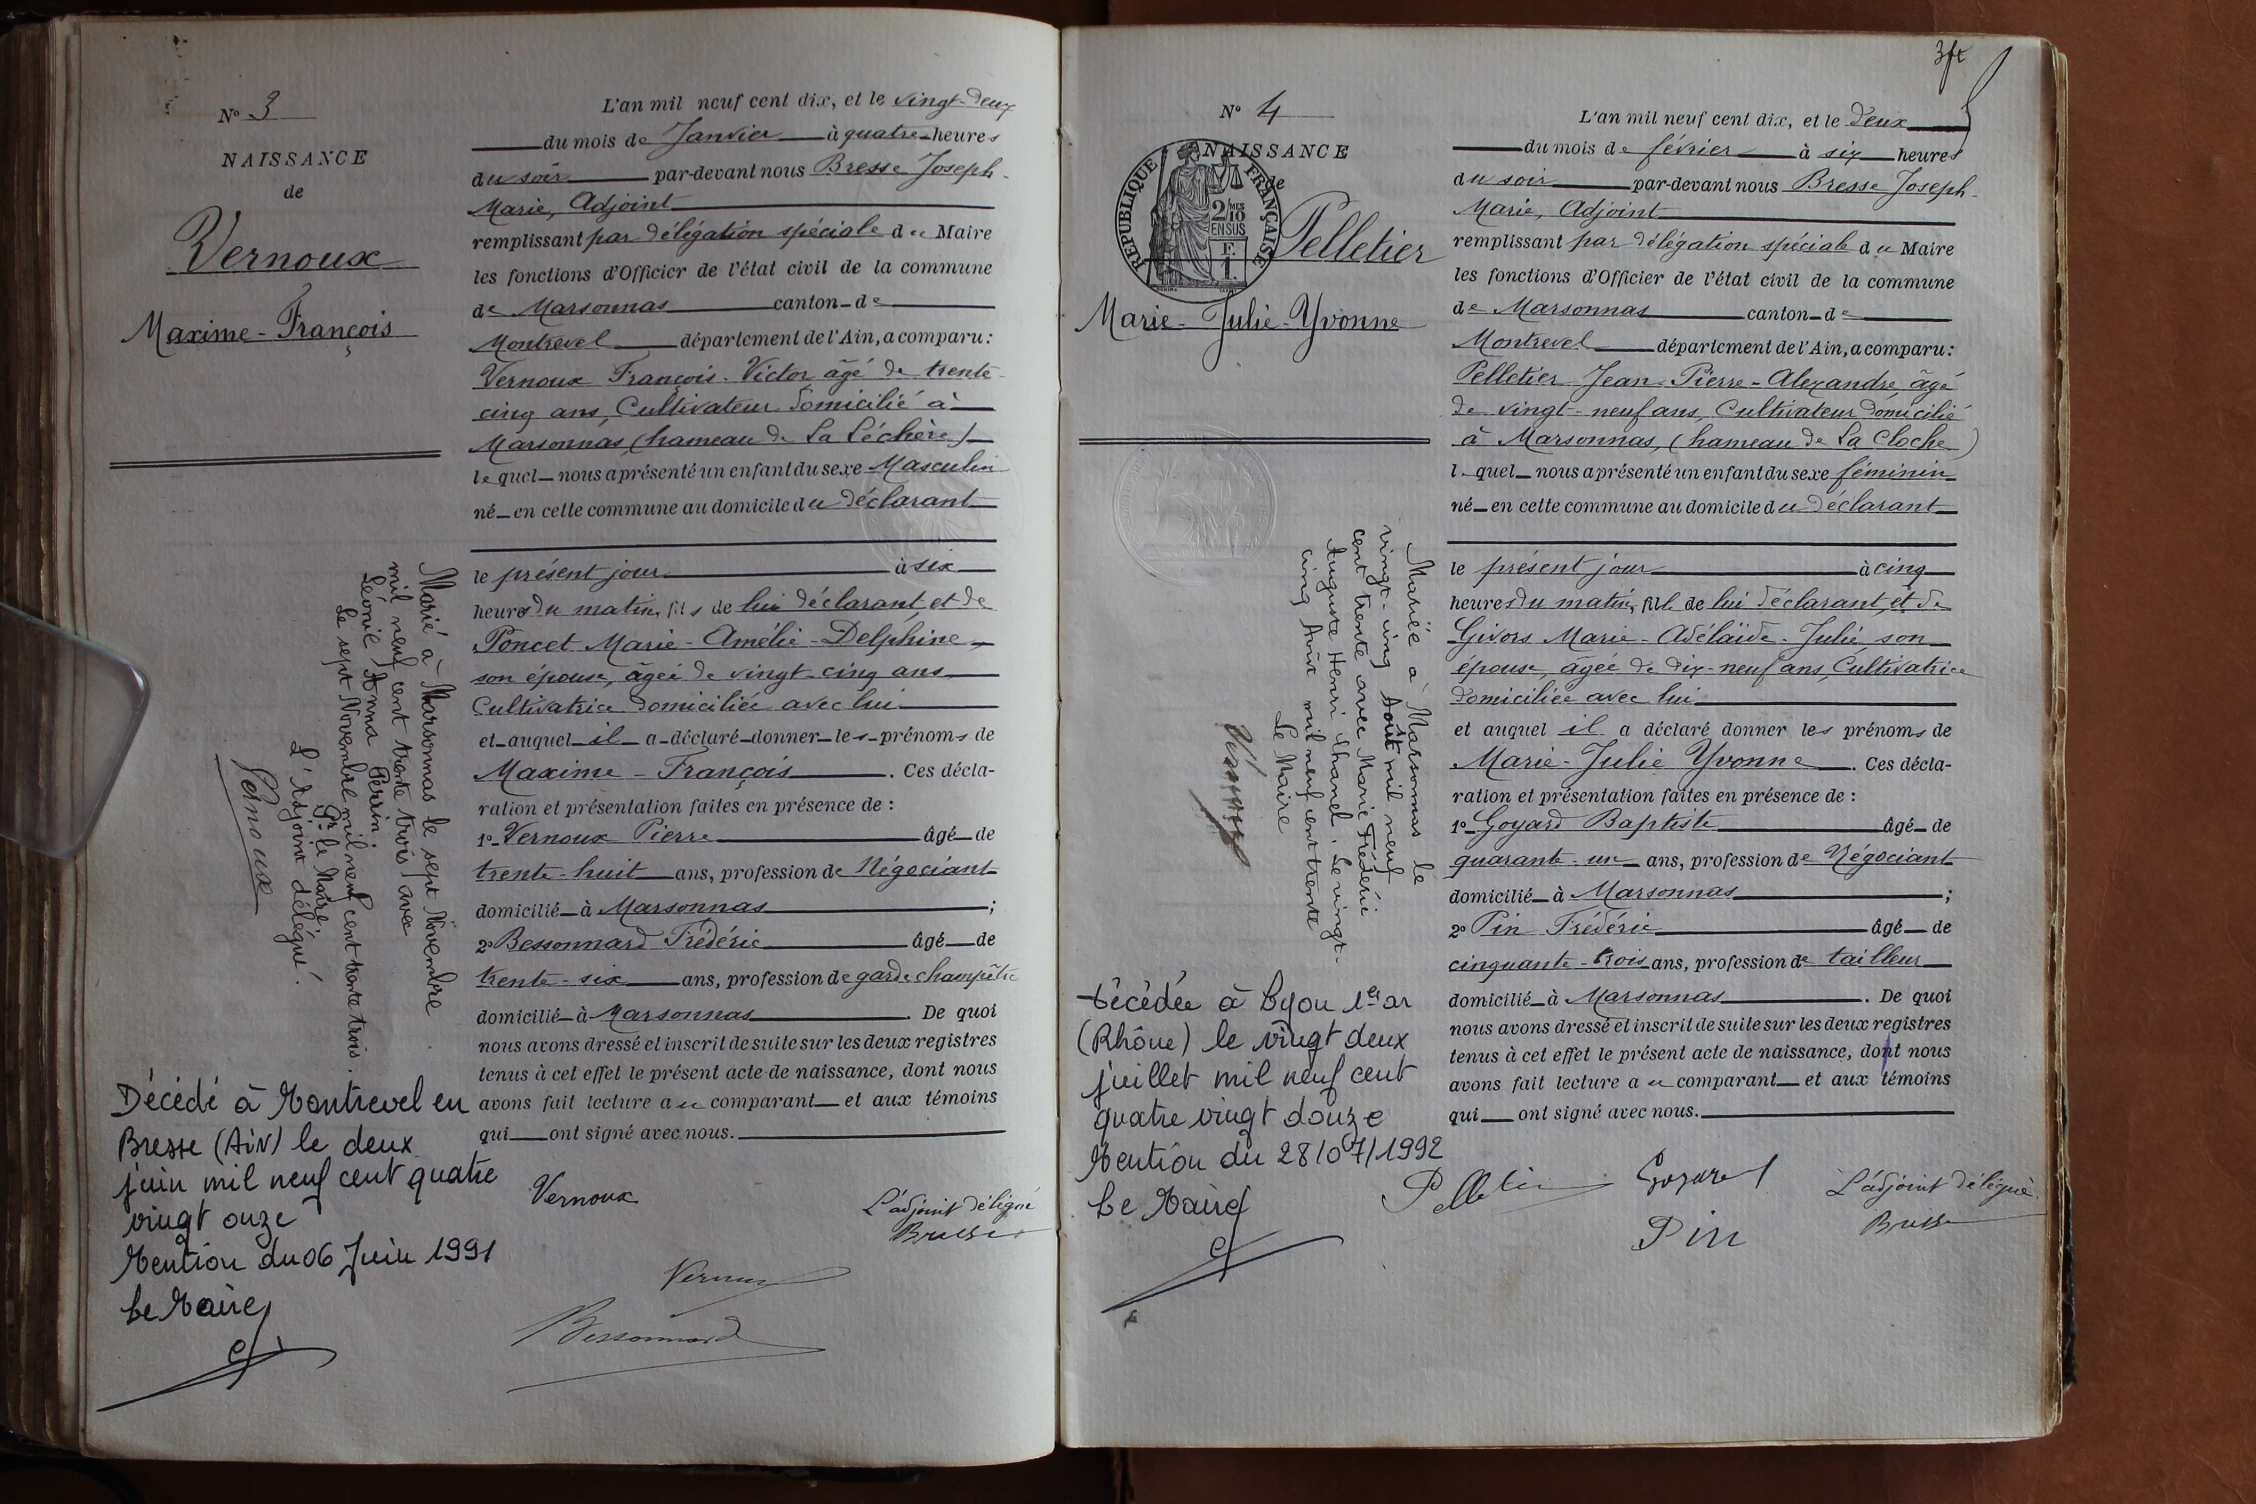 N° 3
NAISSANCE
de
Vernoux
Maxime - François
L'an mil neuf cent dix, et le vingt-deux
du mois de Janvier à quatre heures
du soir par-devant nous Bresse Joseph-
Marie, Adjoint
remplissant par délégation spéciale du Maire
les fonctions d'Officier de l'état civil de la commune
de Marsonnas canton de
Montrevel département de l'Ain, a comparu :
Vernoux François-Victor âgé de trente-
cinq ans, Cultivateur domicilié à
Marsonnas, (hameau de La Léchère)
lequel nous a présenté un enfant du sexe Masculin
né en cette commune au domicile du déclarant
le présent jour à six
heures du matin, fils de lui déclarant, et de
Poncet Marie-Amélie-Delphine,
son épouse, âgée de vingt-cinq ans
Cultivatrice domiciliée avec lui
et auquel il a déclaré donner les prénoms de
Maxime - François. Ces décla-
ration et présentation faites en présence de :
1° Vernoux Pierre âgé de
trente-huit ans, profession de Négociant
domicilié à Marsonnas ;
2° Bessonnard Frédéric âgé de
trente-six ans, profession de garde champêtre
domicilié à Marsonnas. De quoi
nous avons dressé et inscrit de suite sur les deux registres
tenus à cet effet le présent acte de naissance, dont nous
avons fait lecture au comparant et aux témoins
qui ont signé avec nous.
Vernoux
L'adjoint délégué
Bresse
Vernoux
Bessonnard
Marié à Marsonnas le sept Novembre
mil neuf cent trente trois avec
Léonie Anna Perrin
Le sept Novembre mil neuf cent trente trois.
Pr le Maire,
L'Adjoint délégué.
Vernoux
Décédé à Montrevel en
Bresse (AiN) le deux
juin mil neuf cent quatre
vingt onze
Mention du 06 Juin 1991
Le Maire
3ft
N° 4
NAISSANCE
de
REPUBLIQUE FRANÇAISE
2/10 MES
EN SUS
F.
1.
Pelletier
Marie - Julie - Yvonne
L'an mil neuf cent dix, et le deux
du mois de février à six heures
du soir par-devant nous Bresse Joseph-
Marie, Adjoint
remplissant par délégation spéciale du Maire
les fonctions d'Officier de l'état civil de la commune
de Marsonnas canton de
Montrevel département de l'Ain, a comparu :
Pelletier Jean-Pierre-Alexandre, âgé
de vingt-neuf ans, Cultivateur domicilié
à Marsonnas, (hameau de La Cloche)
lequel nous a présenté un enfant du sexe féminin
né en cette commune au domicile du déclarant
le présent jour à cinq
heures du matin, fille de lui déclarant, et de
Givors Marie-Adélaïde-Julie, son
épouse, âgée de dix-neuf ans, Cultivatrice
domiciliée avec lui
et auquel il a déclaré donner les prénoms de
Marie-Julie Yvonne. Ces décla-
ration et présentation faites en présence de :
1° Goyard Baptiste âgé de
quarante-un ans, profession de Négociant
domicilié à Marsonnas ;
2° Pin Frédéric âgé de
cinquante-trois ans, profession de tailleur
domicilié à Marsonnas. De quoi
nous avons dressé et inscrit de suite sur les deux registres
tenus à cet effet le présent acte de naissance, dont nous
avons fait lecture au comparant et aux témoins
qui ont signé avec nous.
Pelletier
Goyard
L'adjoint délégué
Pin
Bresse
Mariée à Marsonnas le
vingt-cinq Août mil neuf
cent trente avec Marie Frédéric
Auguste Henri Chanel. Le vingt-
cinq Août mil neuf cent trente
Le Maire
Décédée à Lyon 1er ar
(Rhône) le vingt deux
juillet mil neuf cent
quatre vingt douze
Mention du 28/07/1992
Le Maire